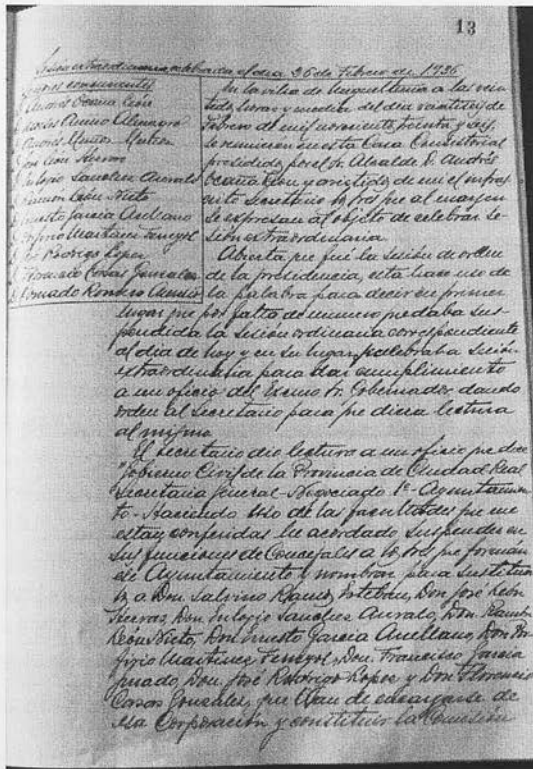 13
Sesión extraordinaria celebrada el día 26 de Febrero de 1936
Señores concurrentes
D. Andrés Ocaña León
Moreno
D. José León Hervás
D. Eulogio Sanchez
D. Ramon León Nieto
D. Ernesto García Arellano
D. Porfirio Martinez
D. José Rodrigo Lopez
D. Florencio Casas Gonzalez
D. Romero
En la villa de a las vein
tidos horas y media del día veintiseis de
Febrero de mil novecientos treinta y seis,
se reunieron en esta Casa Consistorial
presididos por el Sr. Alcalde D. Andrés
Ocaña León y asistidos de mi el infras
crito Secretario los Sres que al margen
se expresan al objeto de celebrar se-
sión extraordinaria.
Abierta que fué la sesión de orden
de la presidencia, esta hace uso de
la palabra para decir en primer
lugar que por falta de numero quedaba sus-
pendida la sesión ordinaria correspondiente
al dia de hoy y en su lugar se celebraba sesión
extraordinaria para dar cumplimiento
a un oficio del Excmo Sr. Gobernador dando
orden al Secretario para que diera lectura
al mismo
El Secretario dio lectura a un oficio que dice
"Gobierno Civil de la Provincia de Ciudad Real
Secretaria General - Negociado 1º - Ayuntamien-
to - Haciendo uso de las facultades que me
estan conferidas he acordado suspender en
sus funciones de Concejales a los Sres que forman
ese Ayuntamiento y nombrar para sustituir
los a Don Salvino Ramos Esteban, Don José León
Hervas, Don Eulogio Sanchez Don Ramón
León Nieto, Don Ernesto García Arellano, Don Por
firio Martinez Don Francisco García
Jurado Don José Rodrigo Lopez y Don Florencio
Casas Gonzalez, que han de encargarse de
esa Corporación y constituir la Comisión